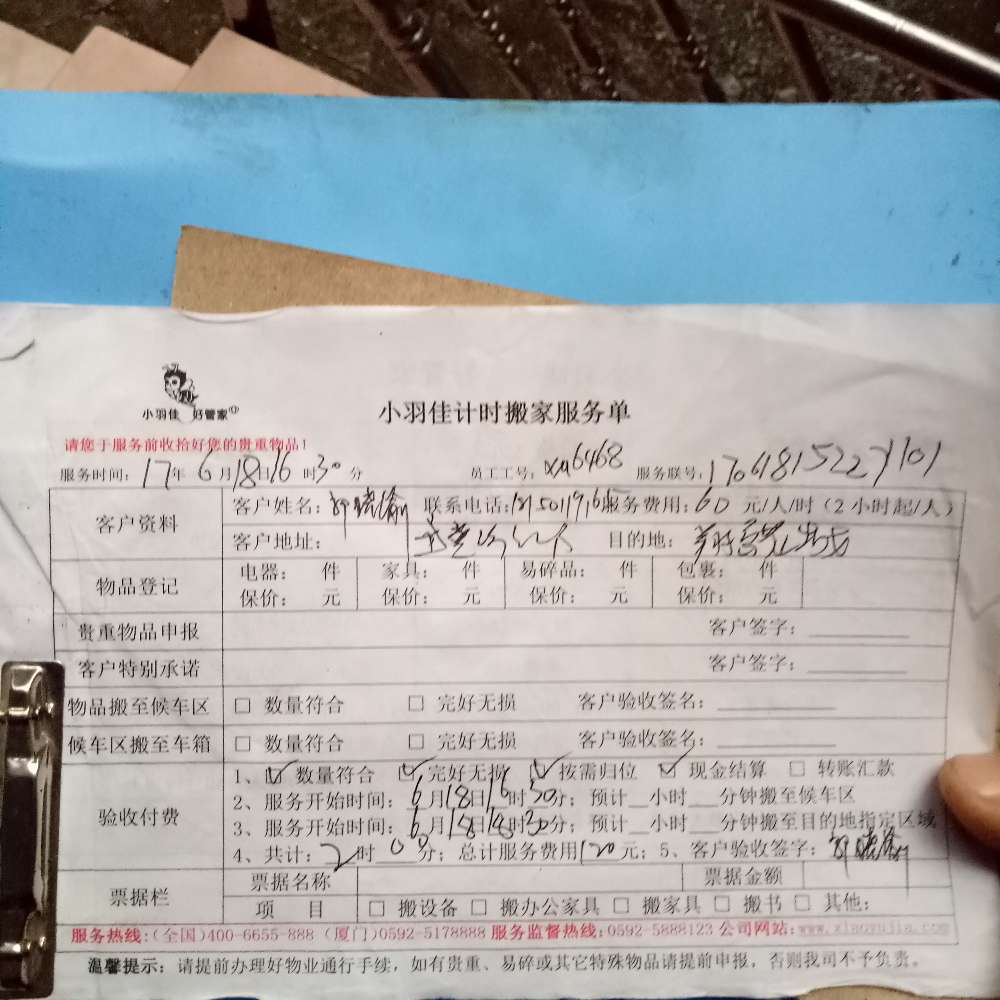 小羽佳 好管家
小羽佳计时搬家服务单
请您于服务前收拾好您的贵重物品！
服务时间：17年6月18日16时30分 员工工号：xm6468 服务联号：
客户资料 客户姓名： 联系电话： 服务费用：60 元/人/时（2小时起/人）
客户地址： 目的地：
物品登记 电器： 件 家具： 件 易碎品： 件 包裹： 件
保价： 元 保价： 元 保价： 元 保价： 元
贵重物品申报 客户签字：
客户特别承诺 客户签字：
物品搬至候车区 □ 数量符合 □ 完好无损 客户验收签名：
候车区搬至车箱 □ 数量符合 □ 完好无损 客户验收签名：
验收付费 1、☑ 数量符合 ☑ 完好无损 ☑ 按需归位 ☑ 现金结算 □ 转账汇款
2、服务开始时间：6月18日16时30分；预计__小时___分钟搬至候车区
3、服务开始时间：6月18日18时30分；预计__小时___分钟搬至目的地指定区域
4、共计：2时00分；总计服务费用120元；5、客户验收签字：
票据栏 票据名称 票据金额
项 目 □ 搬设备 □ 搬办公家具 □ 搬家具 □ 搬书 □ 其他：
服务热线：（全国）400-6655-888（厦门）0592-5178888 服务监督热线：0592-5888123 公司网站：www.xiaoyujia.com
温馨提示：请提前办理好物业通行手续，如有贵重、易碎或其它特殊物品请提前申报，否则我司不予负责。